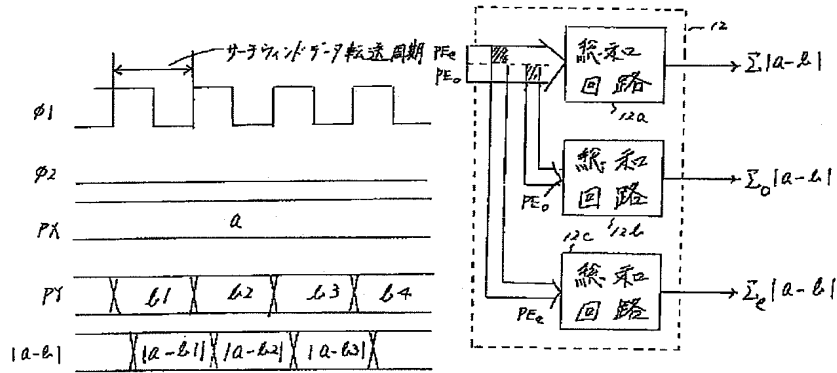 サーチウィンドデータ転送周期
φ1
φ2
PX
a
PY
b1 b2 b3 b4
|a-b|
|a-b1| |a-b2| |a-b3|
12
PEe
PEo
総和
回路
12a
Σ|a-b|
総和
回路
PEo
12b
Σo|a-b|
12c
総和
回路
PEe
Σe|a-b|